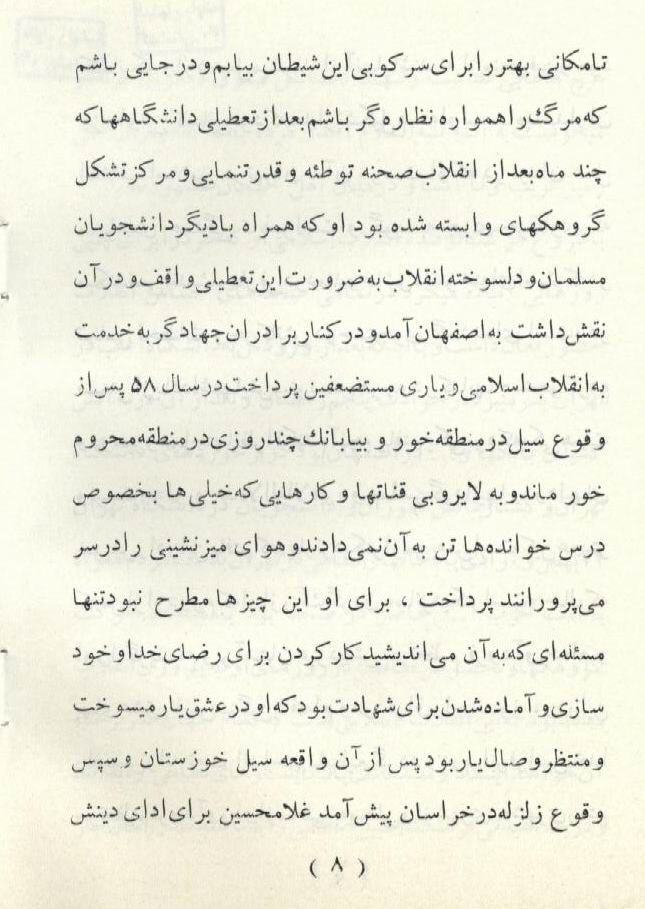 تامکانی بهتر را برای سرکوبی این شیطان بیابم و در جایی باشم
که مرگ را همواره نظاره گر باشم بعد از تعطیلی دانشگاهها که
چند ماه بعد از انقلاب صحنه توطئه و قدرتنمایی و مرکز تشکل
گروهکهای وابسته شده بود او که همراه بادیگر دانشجویان
مسلمان و دلسوخته انقلاب به ضرورت این تعطیلی واقف و در آن
نقش داشت به اصفهان آمد و در کنار برادران جهادگر به خدمت
به انقلاب اسلامی و یاری مستضعفین پرداخت در سال ۵۸ پس از
وقوع سیل در منطقه خور و بیابانک چند روزی در منطقه محروم
خور ماند و به لایروبی قناتها و کارهایی که خیلی ها بخصوص
درس خوانده ها تن به آن نمی دادند و هوای میز نشینی را در سر
می پرورانند پرداخت ، برای او این چیزها مطرح نبود تنها
مسئله ای که به آن می اندیشید کار کردن برای رضای خدا و خود
سازی و آماده شدن برای شهادت بود که او در عشق یار میسوخت
و منتظر وصال یار بود پس از آن واقعه سیل خوزستان و سپس
وقوع زلزله در خراسان پیش آمد غلامحسین برای ادای دینش
( ۸ )